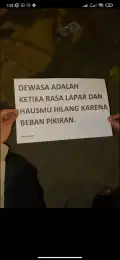 DEWASA ADALAH
KETIKA RASA LAPAR DAN
HAUSMU HILANG KARENA
BEBAN PIKIRAN.